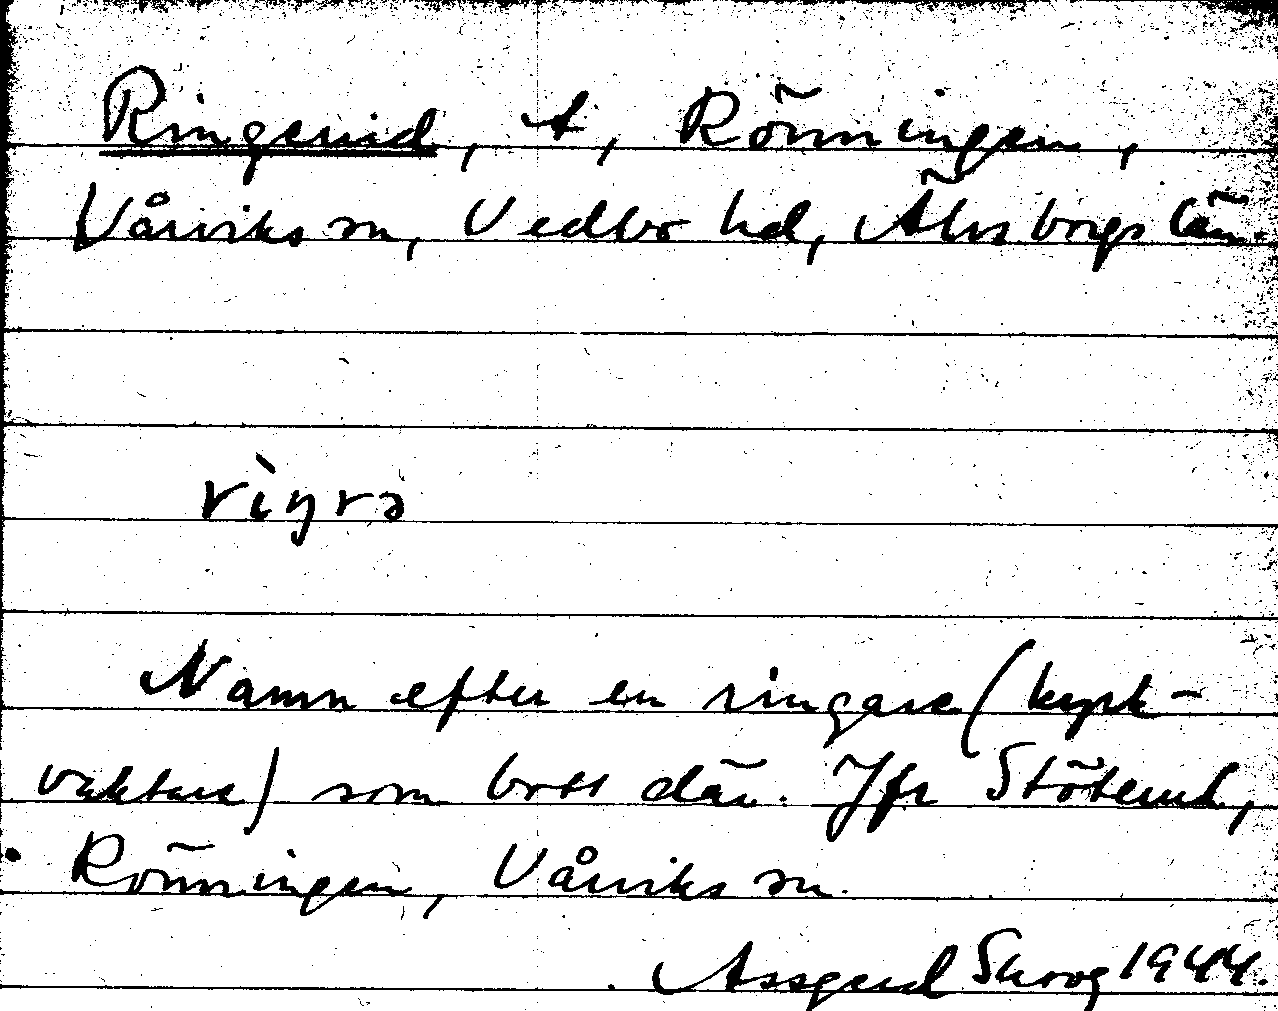 Ringerud, t, Rönningen,
Vårviks sn, Vedbo hd, Älvsborgs län.
rìŋrə
Namn efter en ringare (kyrk-
vaktare) som bott där. Jfr Stöterud,
Rönningen, Vårviks sn.
Assgerd Skroog 1944.